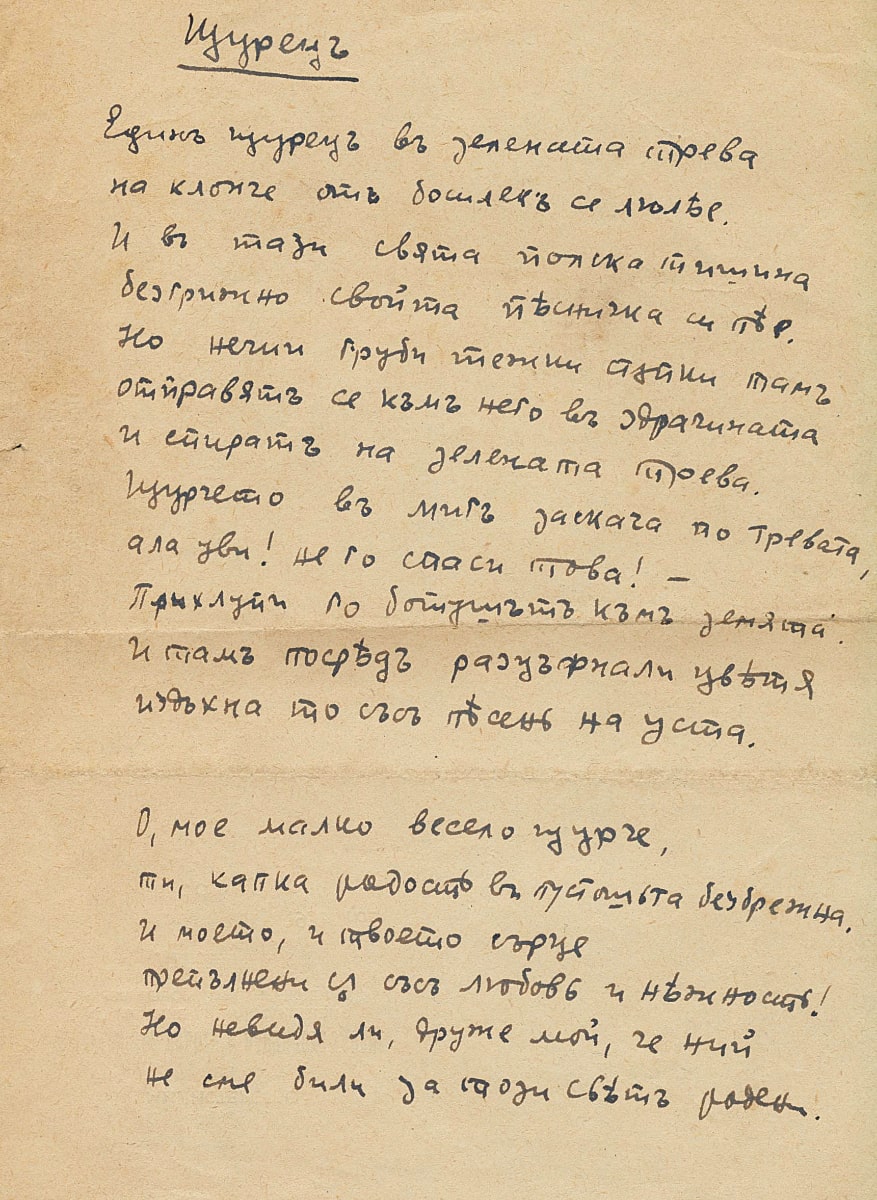 Щурецъ
Единъ щурецъ въ зелената трева
на клонче отъ босилекъ се люлѣе.
И въ тази свята полска тишина
безгрижно свойта пѣсничка си пѣе.
Но нечии груби тежки стѫпки тамъ
отправятъ се къмъ него въ здрачината
и спиратъ на зелената трева.
Щурчето въ мигъ заскача по тревата,
ала уви! не го спаси това! –
Прихлупи го ботушътъ къмъ земята.
И тамъ посрѣдъ разцъфнали цвѣтя
издъхна то съсъ пѣсень на уста.
О, мое малко весело щурче,
ти, капка радость въ пустошьта безбрежна.
И моето, и твоето сърце
препълнени сѫ съсъ любовь и нѣжность!
Но невидя ли, друже мой, че ний
не сме били за този свѣтъ родени.